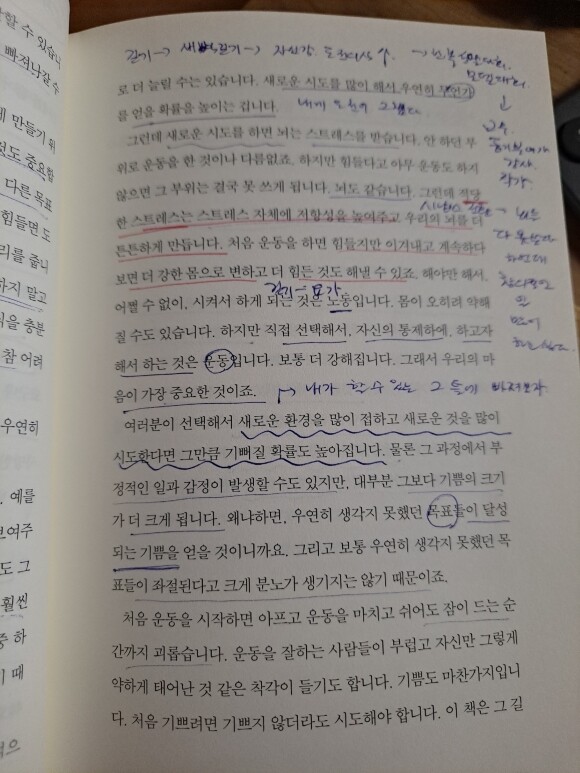 할 수 있습니
빠져나갈 수
걷기 → 새벽걷기 → 자신감. 도전대상 ↑.
로 더 늘릴 수는 있습니다. 새로운 시도를 많이 해서 우연히 무언가
를 얻을 확률을 높이는 겁니다.
그런데 새로운 시도를 하면 뇌는 스트레스를 받습니다. 안 하던 부
위로 운동을 한 것이나 다름없죠. 하지만 힘들다고 아무 운동도 하지
않으면 그 부위는 결국 못 쓰게 됩니다. 뇌도 같습니다. 그런데 적당
한 스트레스는 스트레스 자체에 저항성을 높여주고 우리의 뇌를 더
튼튼하게 만듭니다. 처음 운동을 하면 힘들지만 이겨내고 계속하다
보면 더 강한 몸으로 변하고 더 힘든 것도 해낼 수 있죠. 해야만 해서,
어쩔 수 없이, 시켜서 하게 되는 것은 노동입니다. 몸이 오히려 약해
질 수도 있습니다. 하지만 직접 선택해서, 자신의 통제하에, 하고자
해서 하는 것은 운동입니다. 보통 더 강해집니다. 그래서 우리의 마
음이 가장 중요한 것이죠.
→ 내가 할 수 있는 그 들에 빠져보자
여러분이 선택해서 새로운 환경을 많이 접하고 새로운 것을 많이
시도한다면 그만큼 기뻐질 확률도 높아집니다. 물론 그 과정에서 부
정적인 일과 감정이 발생할 수도 있지만, 대부분 그보다 기쁨의 크기
가 더 크게 됩니다. 왜냐하면, 우연히 생각지 못했던 목표들이 달성
되는 기쁨을 얻을 것이니까요. 그리고 보통 우연히 생각지 못했던 목
표들이 좌절된다고 크게 분노가 생기지는 않기 때문이죠.
처음 운동을 시작하면 아프고 운동을 마치고 쉬어도 잠이 드는 순
간까지 괴롭습니다. 운동을 잘하는 사람들이 부럽고 자신만 그렇게
약하게 태어난 것 같은 착각이 들기도 합니다. 기쁨도 마찬가지입니
다. 처음 기쁘려면 기쁘지 않더라도 시도해야 합니다. 이 책은 그 길
게 만들기 위
것도 중요합
다른 목표
힘들면 도
리를 줄니
하지 말고
식을 충분
참 어려
우연히
. 예를
보여주
도 그
훨씬
중 하
때